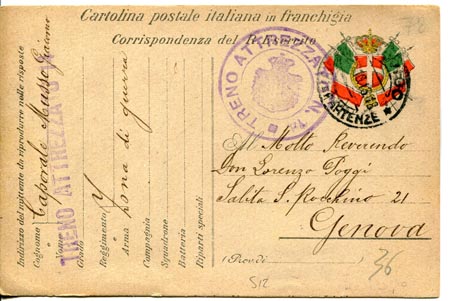 Cartolina postale italiana in franchigia
Corrispondenza del R. Esercito
TRENO ATTREZZA N. 1
PARTENZE
Al Molto Reverendo
Don Lorenzo Poggi
Salita S. Rocchino 21
Genova
(Prondi
36
512
Indirizzo del mittente da riprodurre nelle risposte
Cognome Caporale Musso Giacomo
Nome
Grado
TRENO ATTREZZA
Reggimento
Arma zona di guerra
Compagnia
Squadrone
Batteria
Riparti speciali